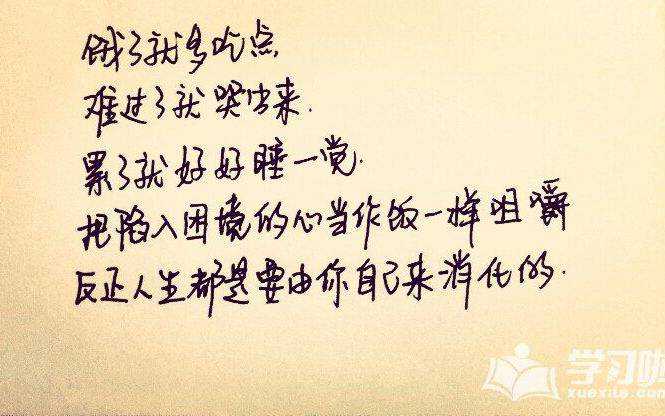 饿了就多吃点
难过了就哭出来.
累了就好好睡一觉.
把陷入困境的心当作饭一样咀嚼
反正人生都是要由你自己来消化的.
学习啦
xuexila.com